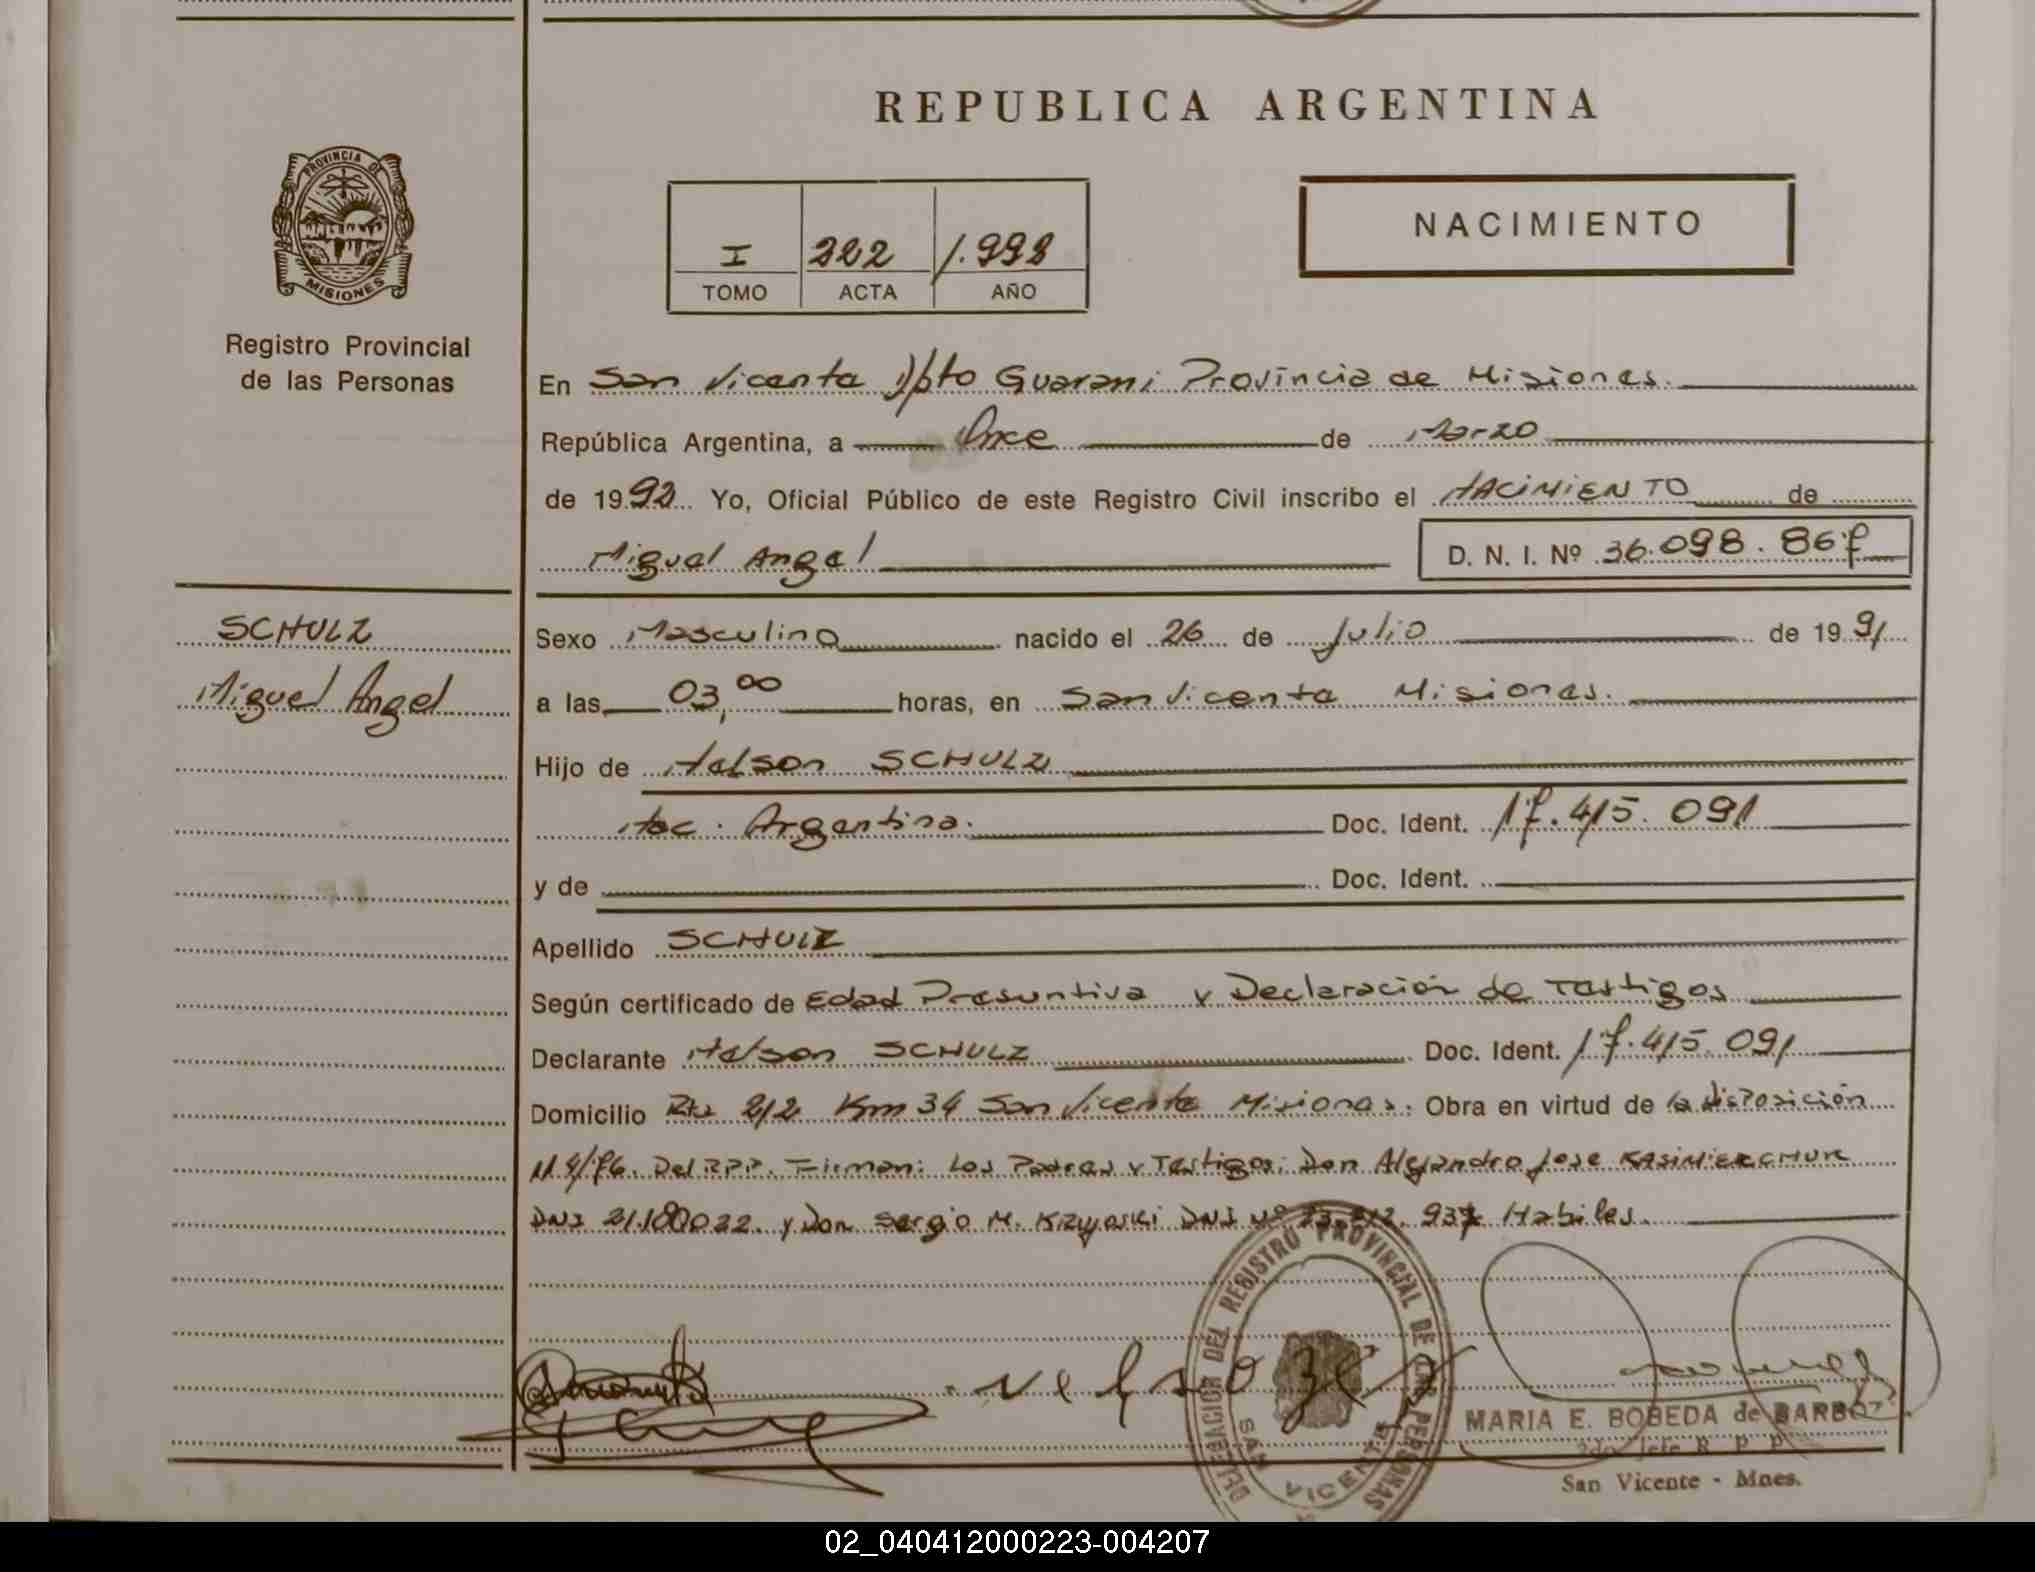 REPUBLICA ARGENTINA
PROVINCIA DE
MISIONES
Registro Provincial
de las Personas
I 222 1.992
TOMO ACTA AÑO
NACIMIENTO
En San Vicente D/pto Guarani Provincia de Misiones.
República Argentina, a Once de Marzo
de 1992 Yo, Oficial Público de este Registro Civil inscribo el NACIMIENTO de
Miguel Angel
D. N. I. Nº 36.098.867
SCHULZ
Miguel Angel
Sexo Masculino nacido el 26 de Julio de 1991
a las 03,00 horas, en San Vicente Misiones.
Hijo de Nelson SCHULZ
Nac. Argentina. Doc. Ident. 17.415.091
y de Doc. Ident.
Apellido SCHULZ
Según certificado de Edad Presuntiva y Declaración de Testigos
Declarante Nelson SCHULZ Doc. Ident. 17.415.091
Domicilio Rta 212 Km 34 San Vicente Misiones. Obra en virtud de la disposición
N.4/76. Del RPP. Firman: Los Padres y Testigos: Don Alejandro Jose
DNI y Don Sergio M. DNI Nº 937 Habiles.
DELEGACION DEL REGISTRO PROVINCIAL DE LAS PERSONAS
SAN VICENTE
MARIA E. BOBEDA de
2do Jefe R. P. P.
San Vicente - Mnes.
02_040412000223-004207